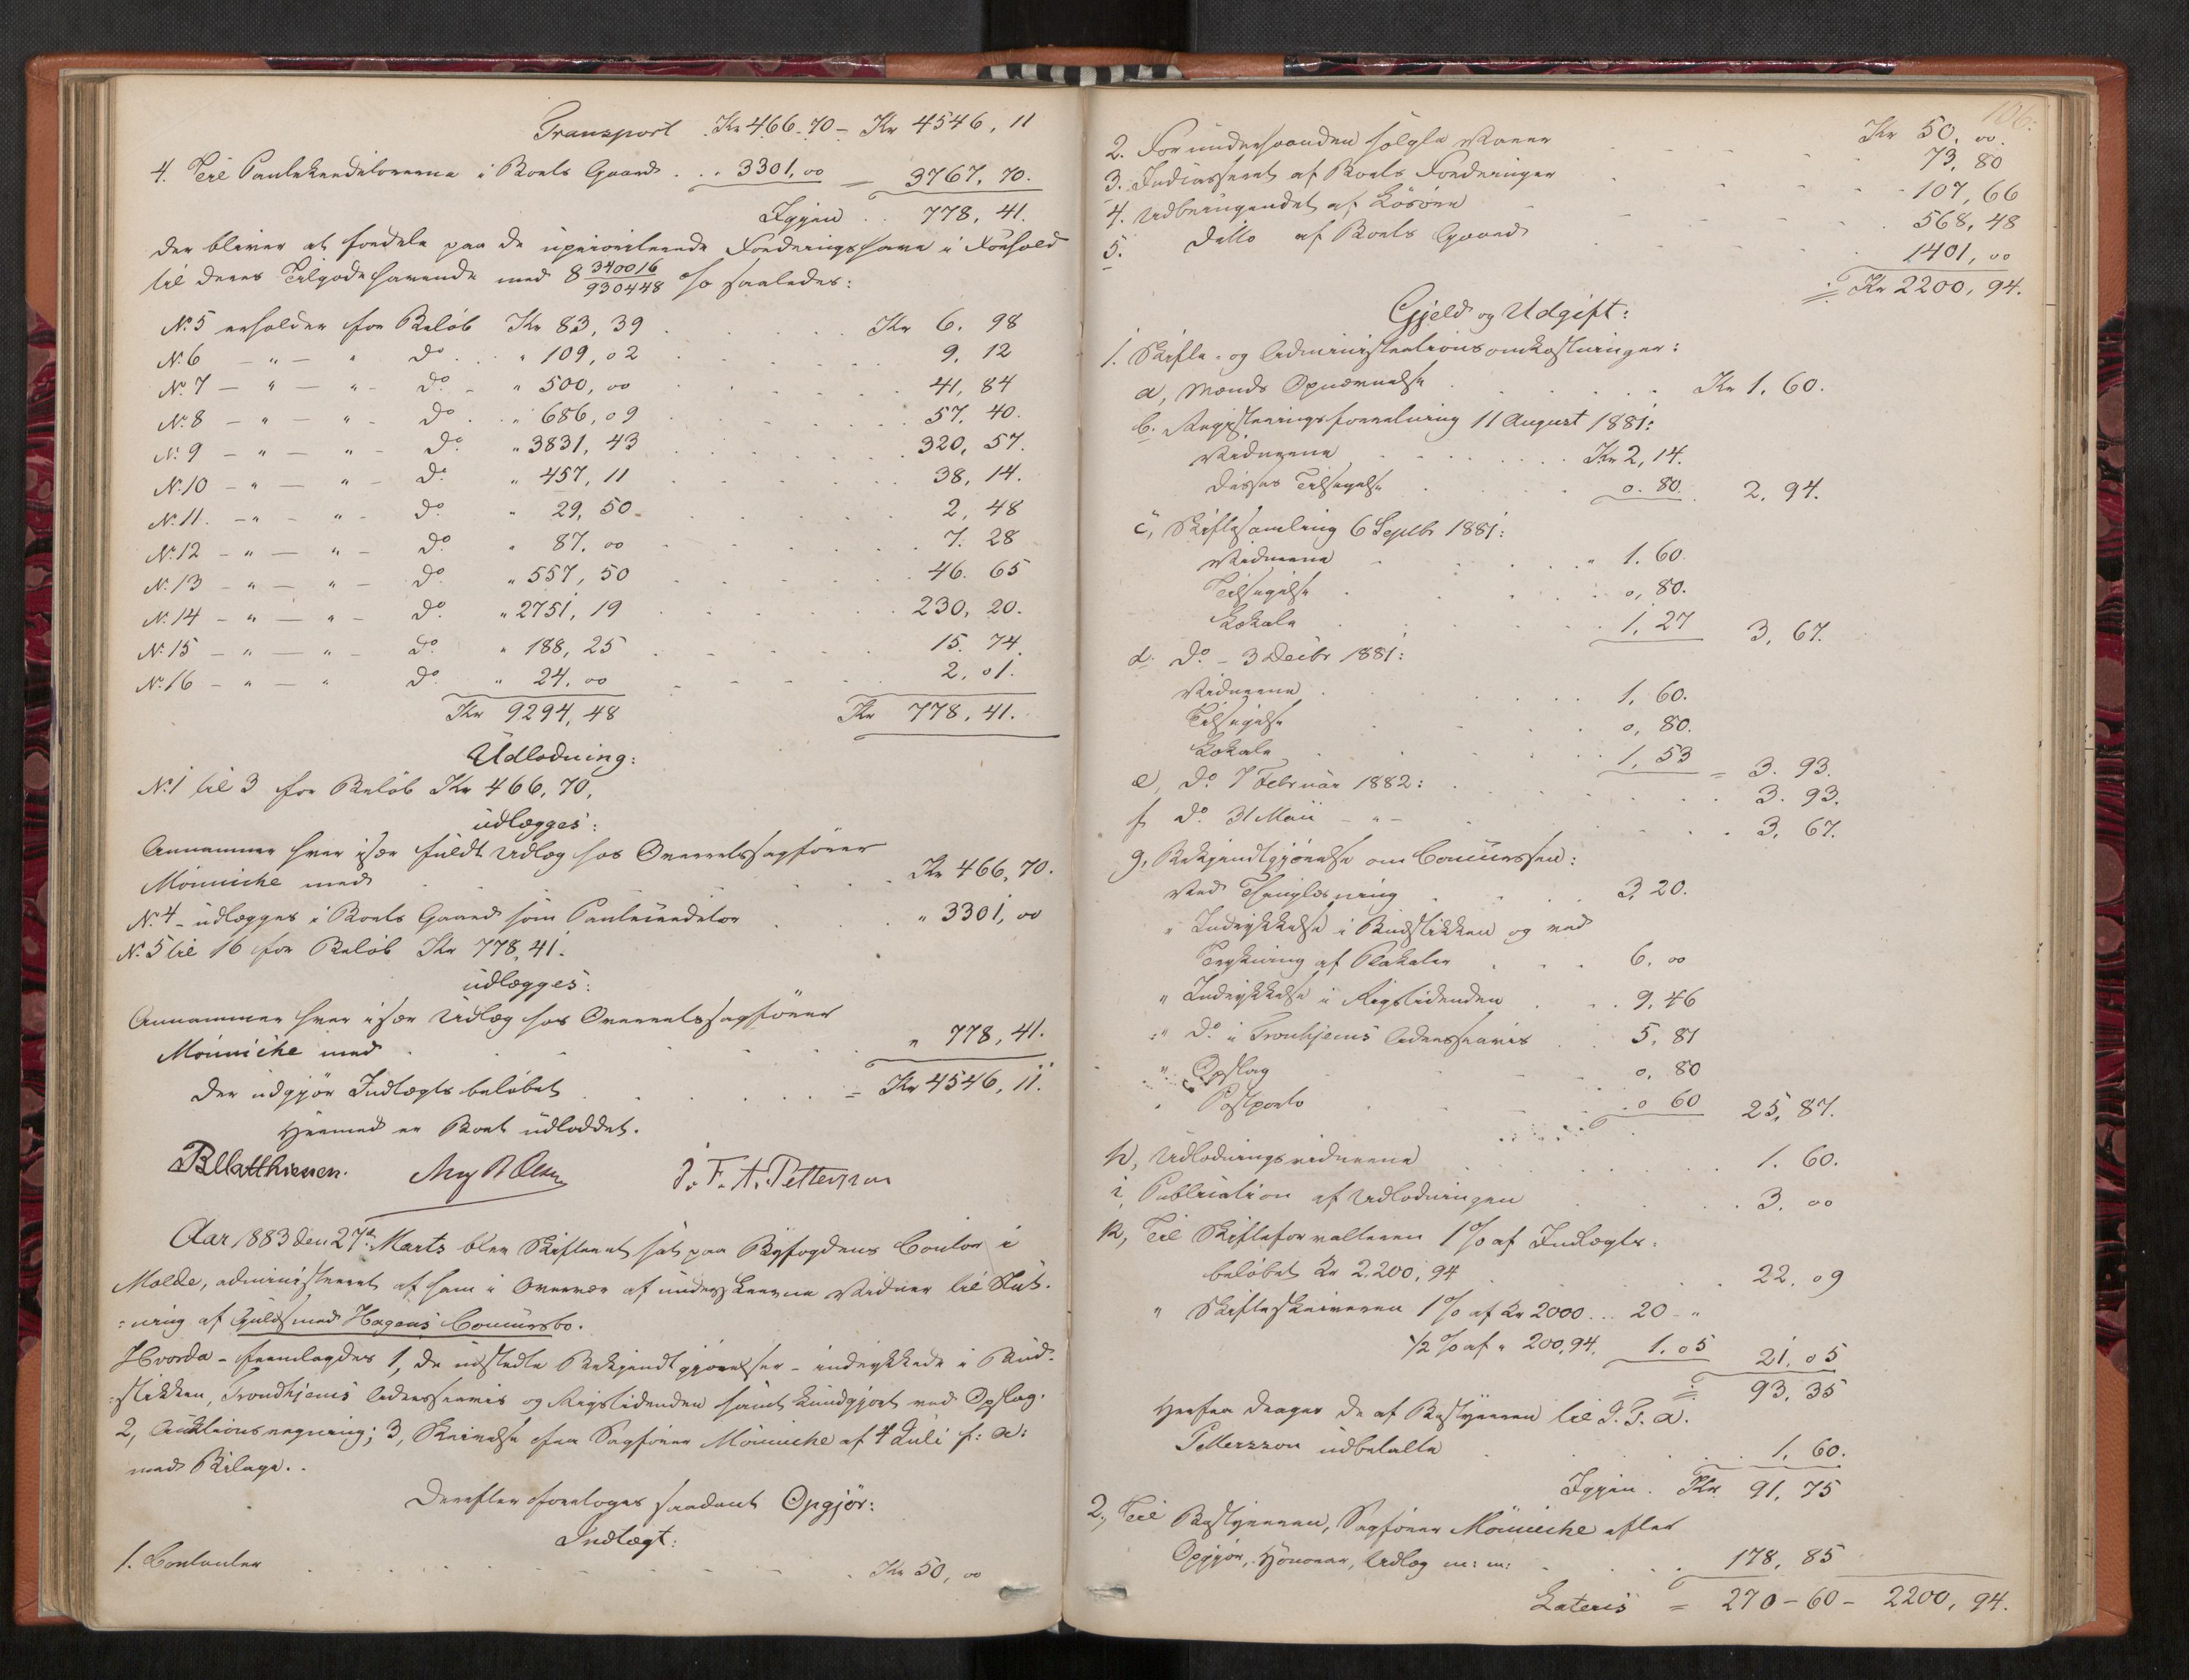 Transport . Kr 466.70 – Kr 4546, 11
4. Til Pantekreditorerne i Boets Gaard . . 3301,00 = 3767, 70.
Igjen . . 778, 41.
der bliver at fordele paa de uprioriterede Fordringshavere i Forhold
til deres Tilgodehavende med 8 340016/930448 % saaledes:
No 5 erholder for Beløb Kr 83, 39 . . . Kr 6. 98
No 6 – " – " do . . " 109, 02 . . . 9. 12
No 7 – " – " – do – " 500, 00 . . . 41, 84
No 8 – " – " – do . . " 686, 09 . . . 57, 40.
No 9 – " – " – do " 3831, 43 . . . 320, 57.
No 10 – " – " – do " 457, 11 . . . 38, 14.
No 11. – " – " – do " 29, 50 . . . 2, 48
No 12 – " – " – do " 87. 00 . . . 7. 28
No 13 – " – " – do " 557, 50 . . . 46. 65
No 14 – " – " – do " 2751, 19 . . . 230, 20.
No 15 – " – " – do " 188, 25 . . . 15. 74
No 16 – " – " do " 24. 00 . . . 2. 01.
Kr 9294, 48 Kr 778, 41.
Udlodning:
No 1 til 3 for Beløb Kr 466. 70,
udlægges:
Annammer hver især fuldt Udlæg hos Overretssagfører
Mönniche med . . . Kr 466, 70.
No 4 – udlægges i Boets Gaard som Pantecreditor . . . " 3301, 00
No 5 til 16 for Beløb Kr 778, 41.
udlægges:
Annammer hver især Udlæg hos Overretssagfører
Mönniche med . . . " 778, 41.
der udgjør Indtægtsbeløbet . . . = Kr 4546, 11.
Hermed er Boet udloddet.
B Matthiesen. Aug B Olsen J. F. A. Petterson
Aar 1883 den 27de Marts blev Skifteret sat paa Byfogdens Contor i
Molde, administreret af ham i Overvær af underskrevne Vidner til Slut-
:ning af Guldsmed Hagens Concursbo.
Hvorda – fremlagdes 1, de udstedte Bekjendtgjørelser – indrykkede i Bud-
:stikken, Trondhjems Adresseavis og Rigstidenden samt kundgjort ved Opslag.
2, Auktionsregning; 3, Skrivelse fra Sagfører Mönniche af 4 Juli f: A:
med Bilage. .
Derefter foretoges saadant Opgjør:
Indtægt:
1. Contanter . . . Kr 50, 00
106.
Kr 50, 00.
2. For underhaanden solgte Varer . . . 73, 80
3. Indcasseret af Boets Fordringer . . . 107, 66
4. Udbringendet af Løsøre . . . 568, 48
5. Ditto af Boets Gaard . . . 1401, 00
Kr 2200, 94.
Gjeld og Udgift:
1. Skifte- og Administrationsomkostninger:
a, Mænds Opnævnelse . . . Kr 1, 60.
b. Registreringsforretning 11 August 1881:
Vidnerne . . . Kr 2, 14.
disses Tilsigelse . . . 0. 80. 2, 94.
c, Skiftesamling 6 Septbr 1881:
Vidnerne . . . " 1. 60.
Tilsigelse . . . 0, 80.
Lokale . . . 1, 27 3, 67.
d. do – 3 Decbr 1881:
Vidnerne . . . 1, 60.
Tilsigelse . . . 0, 80.
Lokale . . . 1, 53 = 3. 93.
e, do 7 Februar 1882: . . . 3. 93.
f do 31 Mai – " – . . . 3, 67.
g, Bekjendtgjørelse om Concursen:
Ved Thinglæsning . . . 3, 20.
" Indrykkelse i Budstikken og ved
Trykning af Plakater . . . 6. 00
" Indrykkelse i Rigstidenden . . . 9, 46
" do i Trondhjems Adresseavis . . 5, 81
" Opslag . . . 0, 80
" Postporto . . . 0 60 25, 87.
h, Udlodningsvidnerne . . . 1. 60.
i, Publication af Udlodningen . . . 3, 00
k, Til Skifteforvalteren 1 % af Indtægts-
beløbet Kr 2.200, 94 . . . 22, 09
" Skifteskriveren 1 % af Kr 2000 . . . 20 – "
1/2 % af " 200, 94. 1. 05 21, 05
93, 35
Herfra drages de af Bestyreren til J. F. A.
Petterszon udbetalte . . . 1, 60.
Igjen . Kr. 91, 75
2., Til Bestyreren, Sagfører Mönniche efter
Opgjør, Honorar, Udlæg m: m: . . . 178, 85
Lateris = 270 – 60 – 2200, 94.